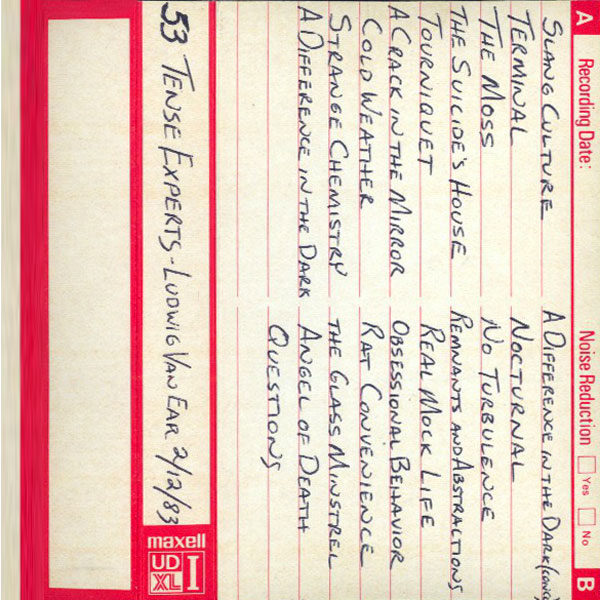 A Recording Date: Noise Reduction Yes No B
SLANG CULTURE
TERMINAL
THE MOSS
THE SUICIDE'S HOUSE
TOURNIQUET
A CRACK IN THE MIRROR
COLD WEATHER
STRANGE CHEMISTRY
A DIFFERENCE IN THE DARK
A DIFFERENCE IN THE DARK (CONC)
NOCTURNAL
NO TURBULENCE
REMNANTS AND ABSTRACTIONS
REAL MOCK LIFE
OBSESSIONAL BEHAVIOR
RAT CONVENIENCE
THE GLASS MINSTREL
ANGEL OF DEATH
QUESTIONS
53 TENSE EXPERTS - LUDWIG VAN EAR 2/12/83
maxell
UD
XL I